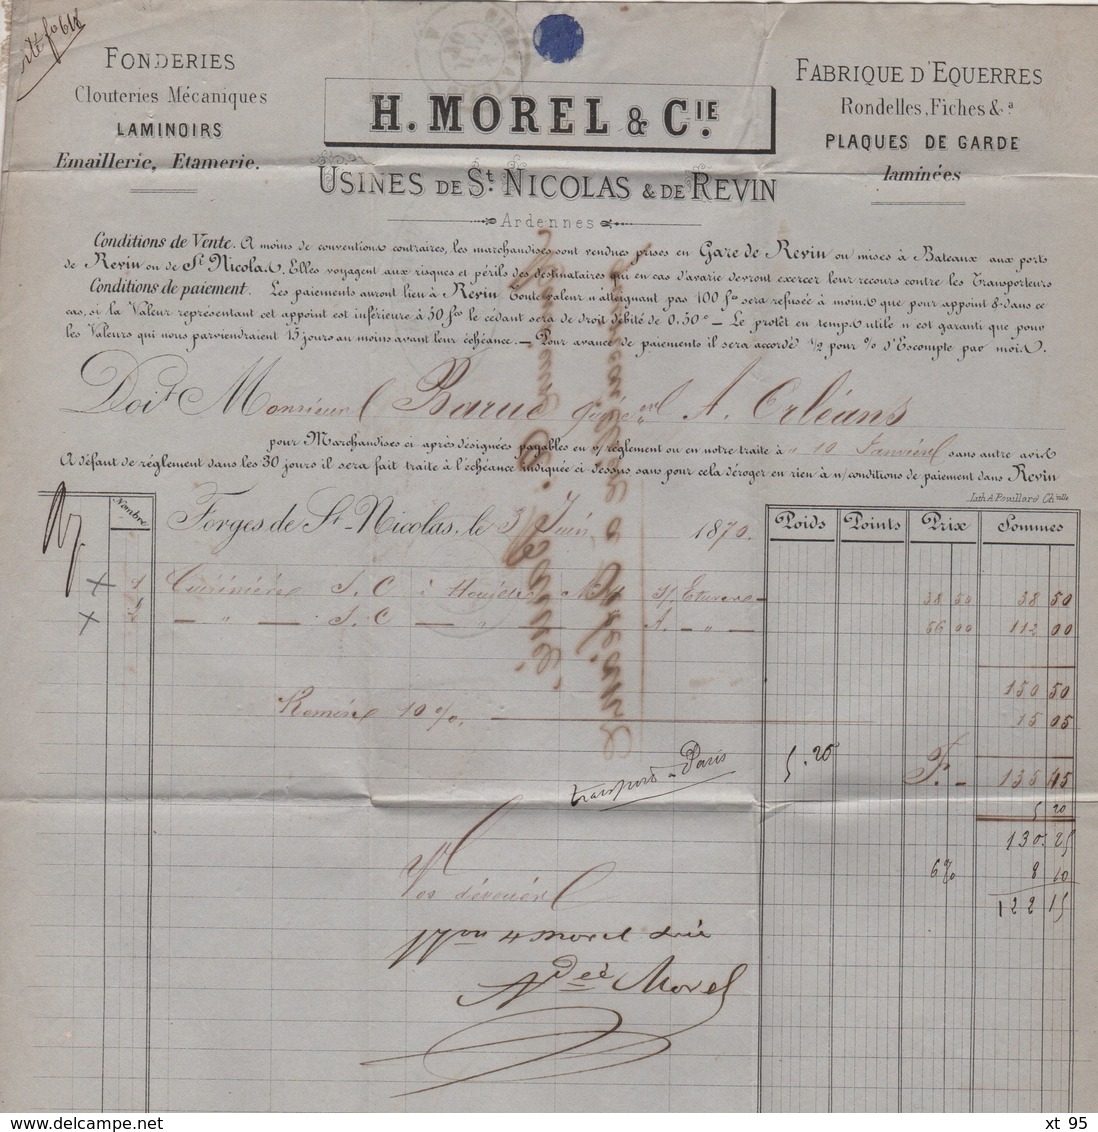 FONDERIES
Clouteries Mécaniques
LAMINOIRS
Emaillerie, Etamerie.
H. MOREL & CIE.
USINES DE St. NICOLAS & DE REVIN
Ardennes
FABRIQUE D'EQUERRES
Rondelles, Fiches &.a
PLAQUES DE GARDE
laminées
Conditions de Vente. A moins de conventions contraires, les marchandises sont vendues prises en Gare de Revin ou mises à Bateaux aux ports
de Revin ou de St. Nicolas. Elles voyagent aux risques et périls des destinataires qui en cas d'avarie devront exercer leur recours contre les Transporteurs
Conditions de paiement. Les paiements auront lieu à Revin Toute valeur n'atteignant pas 100 frs sera refusée à moins que pour appoint & dans ce
cas, si la Valeur représentant cet appoint est inférieure à 50 frs le cédant sera de droit débité de 0.50c — Le protêt en temps utile n'est garanti que pour
les Valeurs qui nous parviendraient 15 jours au moins avant leur échéance. — Pour avance de paiements il sera accordé 1/2 pour % d'Escompte par mois.
Doit Monsieur Baruc A. Orléans
pour Marchandises ci après désignées payables en v/ réglement ou en notre traite à 10 Janvier sans autre avis
A défaut de réglement dans les 30 jours il sera fait traite à l'échéance indiquée ci dessus sans pour cela déroger en rien à n/ conditions de paiement dans Revin
Lith A. Pouillard Chville
Nombre
Forges de St. Nicolas, le 3 Juin 1870.
Poids Points Prix Sommes
1 Cuisinière S. C 38 50 38 50
2 — " — S. C — " A. — " — 56 00 112 00
150 50
Remise 10 %. 15 05
transport à Paris 5.20 F. — 135 45
5 20
130.25
6% 8 10
122 15
Vos dévoués
Adée Morel
xt 95